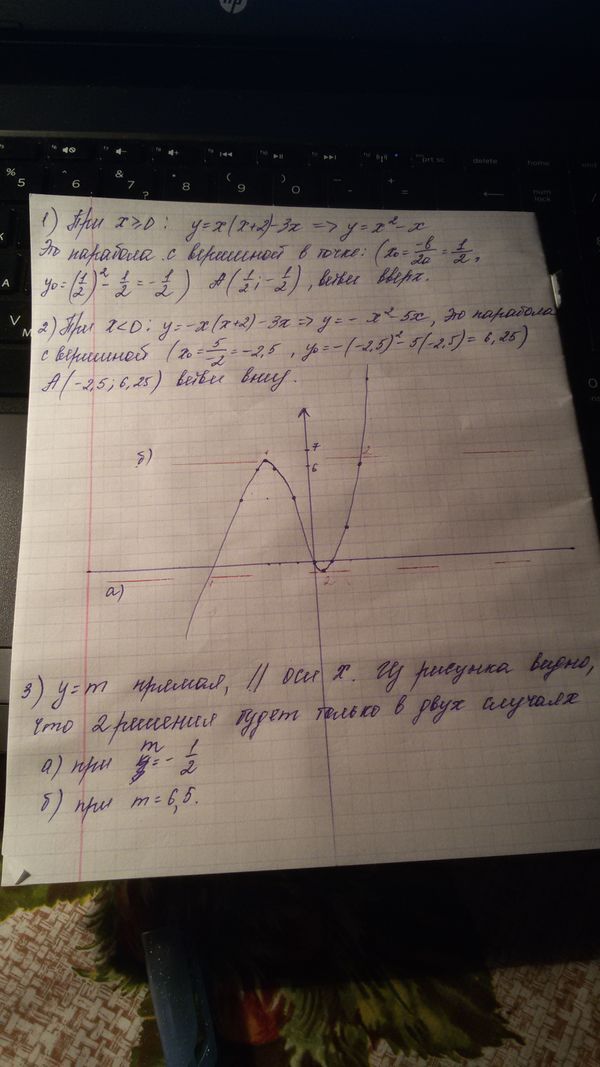 1) При x≥0: y=x(x+2)-3x => y=x²-x
Это парабола с вершиной в точке: (x₀=-b/2a=1/2,
y₀=(1/2)²-1/2=-1/2) A(1/2;-1/2), ветви вверх.
2) При x<0: y=-x(x+2)-3x=>y=-x²-5x, это парабола
с вершиной (x₀=5/-2=-2,5, y₀=-(-2,5)²-5(-2,5)=6,25)
A(-2,5;6,25) ветви вниз.
б)
1
7
6
2
а)
1
2
3) y=m прямая, // оси x. Из рисунка видно,
что 2 решения будет только в двух случаях
а) при m=-1/2
б) при m=6,5.
hp
5
6
7
8
9
0
prt sc
delete
home
end
num lock